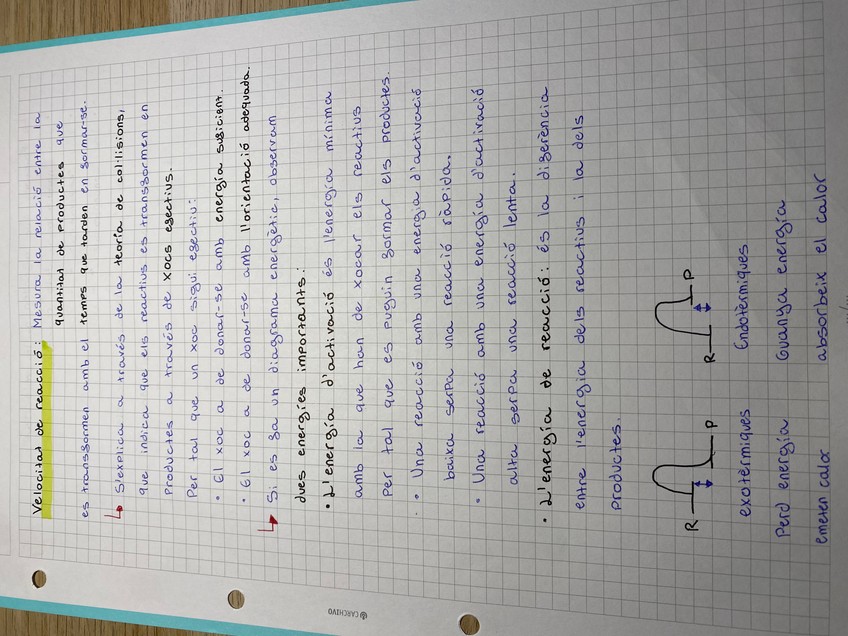 Velocitat de reacció: Mesura la relació entre la
quantitat de productes que
es transformen amb el temps que tarden en formar-se.
S'explica a través de la teoria de col·lisions,
que indica que els reactius es transformen en
Productes a través de xocs efectius.
Per tal que un xoc sigui efectiu:
• El xoc a de donar-se amb energía suficient.
• El xoc a de donar-se amb l'orientació adequada.
Si es fa un diagrama energètic, observam
dues energíes importants:
• L'energía d'activació és l'energía mínima
amb la que han de xocar els reactius
Per tal que es puguin formar els productes.
• Una reacció amb una energía d'activació
baixa serpa una reacció ràpida.
• Una reacció amb una energía d'activació
alta serpa una reacció lenta.
• L'energía de reacció: és la diferència
entre l'energía dels reactius i la dels
productes.
R P R P
exotèrmiques Endotèrmiques
Perd energía Guanya energía
emeten calor absorbeix el calor
CARCHIVO